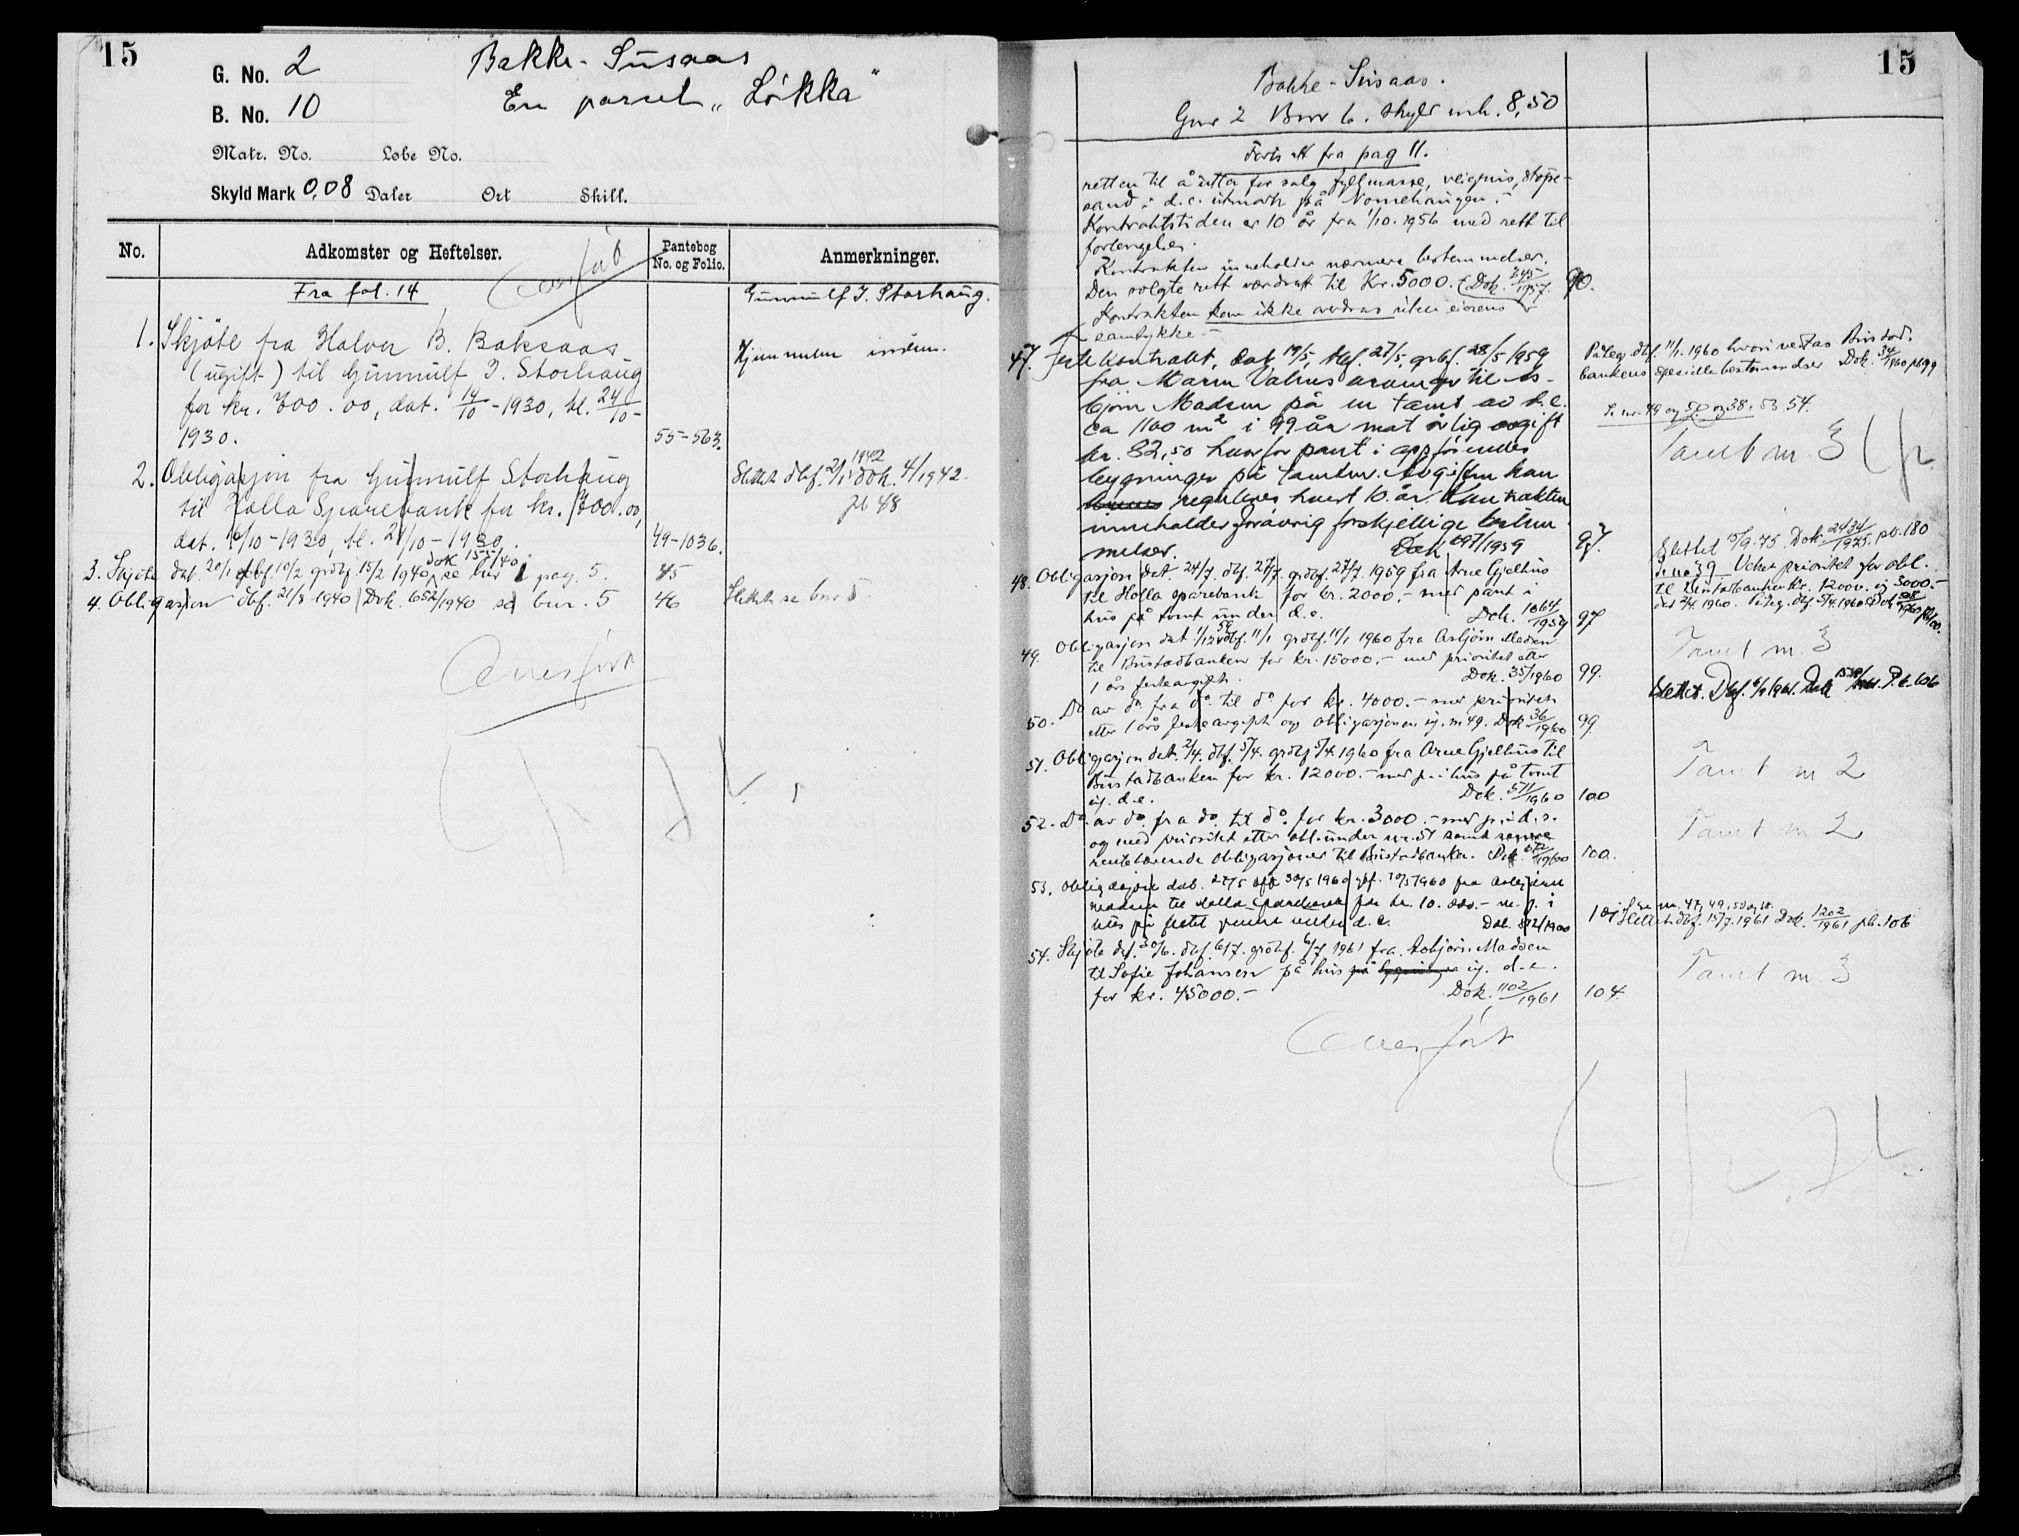 15
G. No. 2
Bakke-Susaas
B. No. 10
En parsel „Løkka"
Matr. No. Løbe No.
Skyld Mark 0,08 Daler Ort Skill.
No.
Adkomster og Heftelser.
Pantebog
No. og Folio.
Anmerkninger.
Overført
Fra fol. 14
Gunnulf J. Storhaug.
1. Skjøte fra Halvor B. Baksaas
(ugift) til Gunnulf J. Storhaug
for kr. 700.00, dat. 14/10-1930, tl. 24/10-
1930.
55-563.
2. Obligasjon fra Gunnulf Storhaug
til Holla Sparebank for kr. 700.00,
dat. /10-1930, tl. 24/10-1930.
49-1036.
Slettet dbf. 2/1 1942 dok. 4/1942.
pb 48
3. Skjøte dat. 20/1 dbf. 10/2 grdbf. 15/2 1940 dok 155/40 se bnr pag. 5.
45
4. Obligasjon dbf. 21/8 1940 Dok. 652/1940 se bnr. 5
46
Slettet se bnr 5
Overført
15
Bakke-Susaas.
Gnr 2 Bnr 6. Skyld mk. 8,50
Forts. fra pag 11.
retten til å utta for salg fyllmasse, veigrus, støpe-
sand i d.e. utmark på Nomehaugen.
Kontraktstiden er 10 år fra 1/10.1956 med rett til
forlengelse.
Kontrakten inneholder nærmere bestemmelser.
Den solgte rett verdsatt til Kr. 5000. (Dok. 345/1957.
90.
Kontrakten kan ikke overdras uten eierens
samtykke.-
47. Festekontrakt, dat 19/5, dbf. 27/5, grbf. 28/5 1959
fra Maren til As-
bjørn Madsen på en tomt av d.e.
ca 1100 m² i 99 år mot årlig avgift
kr. 82,50 hvorfor pant i oppførendes
bygninger på tomten. Avgiften kan
reguleres hvert 10. år. Kontrakten
inneholder forøvrig forskjellige bestem-
melser. Dok 697/1959
97.
Påteg. dbf. 11/1.1960 hvori vedtas Bustad-
bankens spesielle bestemmelser Dok. 34/1960 pb 99
S. nr. 49 og 50 og 38, 53 54.
Tomt nr. 3
48. Obligasjon dat. 24/7 dbf. 27/7. grdbf. 27/7 1959 fra Arne Gjelhus
til Holla sparebank for kr. 2000.- med pant i
hus på tomt under d.e. Dok. 1064/1959
97
Slettet 15/9.75. Dok. 2434/1975. pb. 180
Veket prioritet for obl.
til Bustadbanken kr. 12000. og 3000.-
dat 2/4. 1960. Påteg. dbf. 5/4.1960
49. Obligasjon dat 1/12 59 dbf. 11/1 grdbf. 11/1 1960 fra Asbjørn Madsen
til Bustadbanken for kr. 15000.- med prioritet etter
1 års festeavgift. Dok. 35/1960
99.
Tomt nr. 3
50. Do av do. fra do. til do for kr. 4000.- med prioritet
etter 1 års festeavgift og obligasjonen ig. nr 49. Dok 36/1960
99.
51. Obligasjon dat. 2/4. dbf. 5/4. grdbf 5/4.1960 fra Arne Gjelhus til
Bustadbanken for kr. 12000.- med p. i hus på tomt
ig. d.e. Dok. 571/1960
100
Tomt nr 2
52. Do. av do. fra do. til do. for kr. 3000.- med p. i d.e.
og med prioritet etter obl. under nr. 51 samt senere
rentebærende obligasjoner til Bustadbanken. Dok. 572/1960
100.
Tomt nr 2
53. Obligasjon dat. 27/5 dbf 30/5 1960 gbf. 30/5 1960 fra Asbjørn
Madsen til Holla sparebank for kr. 10.000.- m. p. i
hus på under d.e. Dok. 892/1960
101
Se nr. 47, 49, 50 og 38.
Slettet dbf. 15/7.1961 dok. 1202/1961 pb. 106
54. Skjøte dat. 30/6. dbf. 6/7. grdbf. 6/7 1961 fra Asbjørn Madsen
til Sofie Johansen på hus på ig. d.e.
for kr. 45000.- Dok. 1102/1961
104.
Tomt nr. 3
Overført